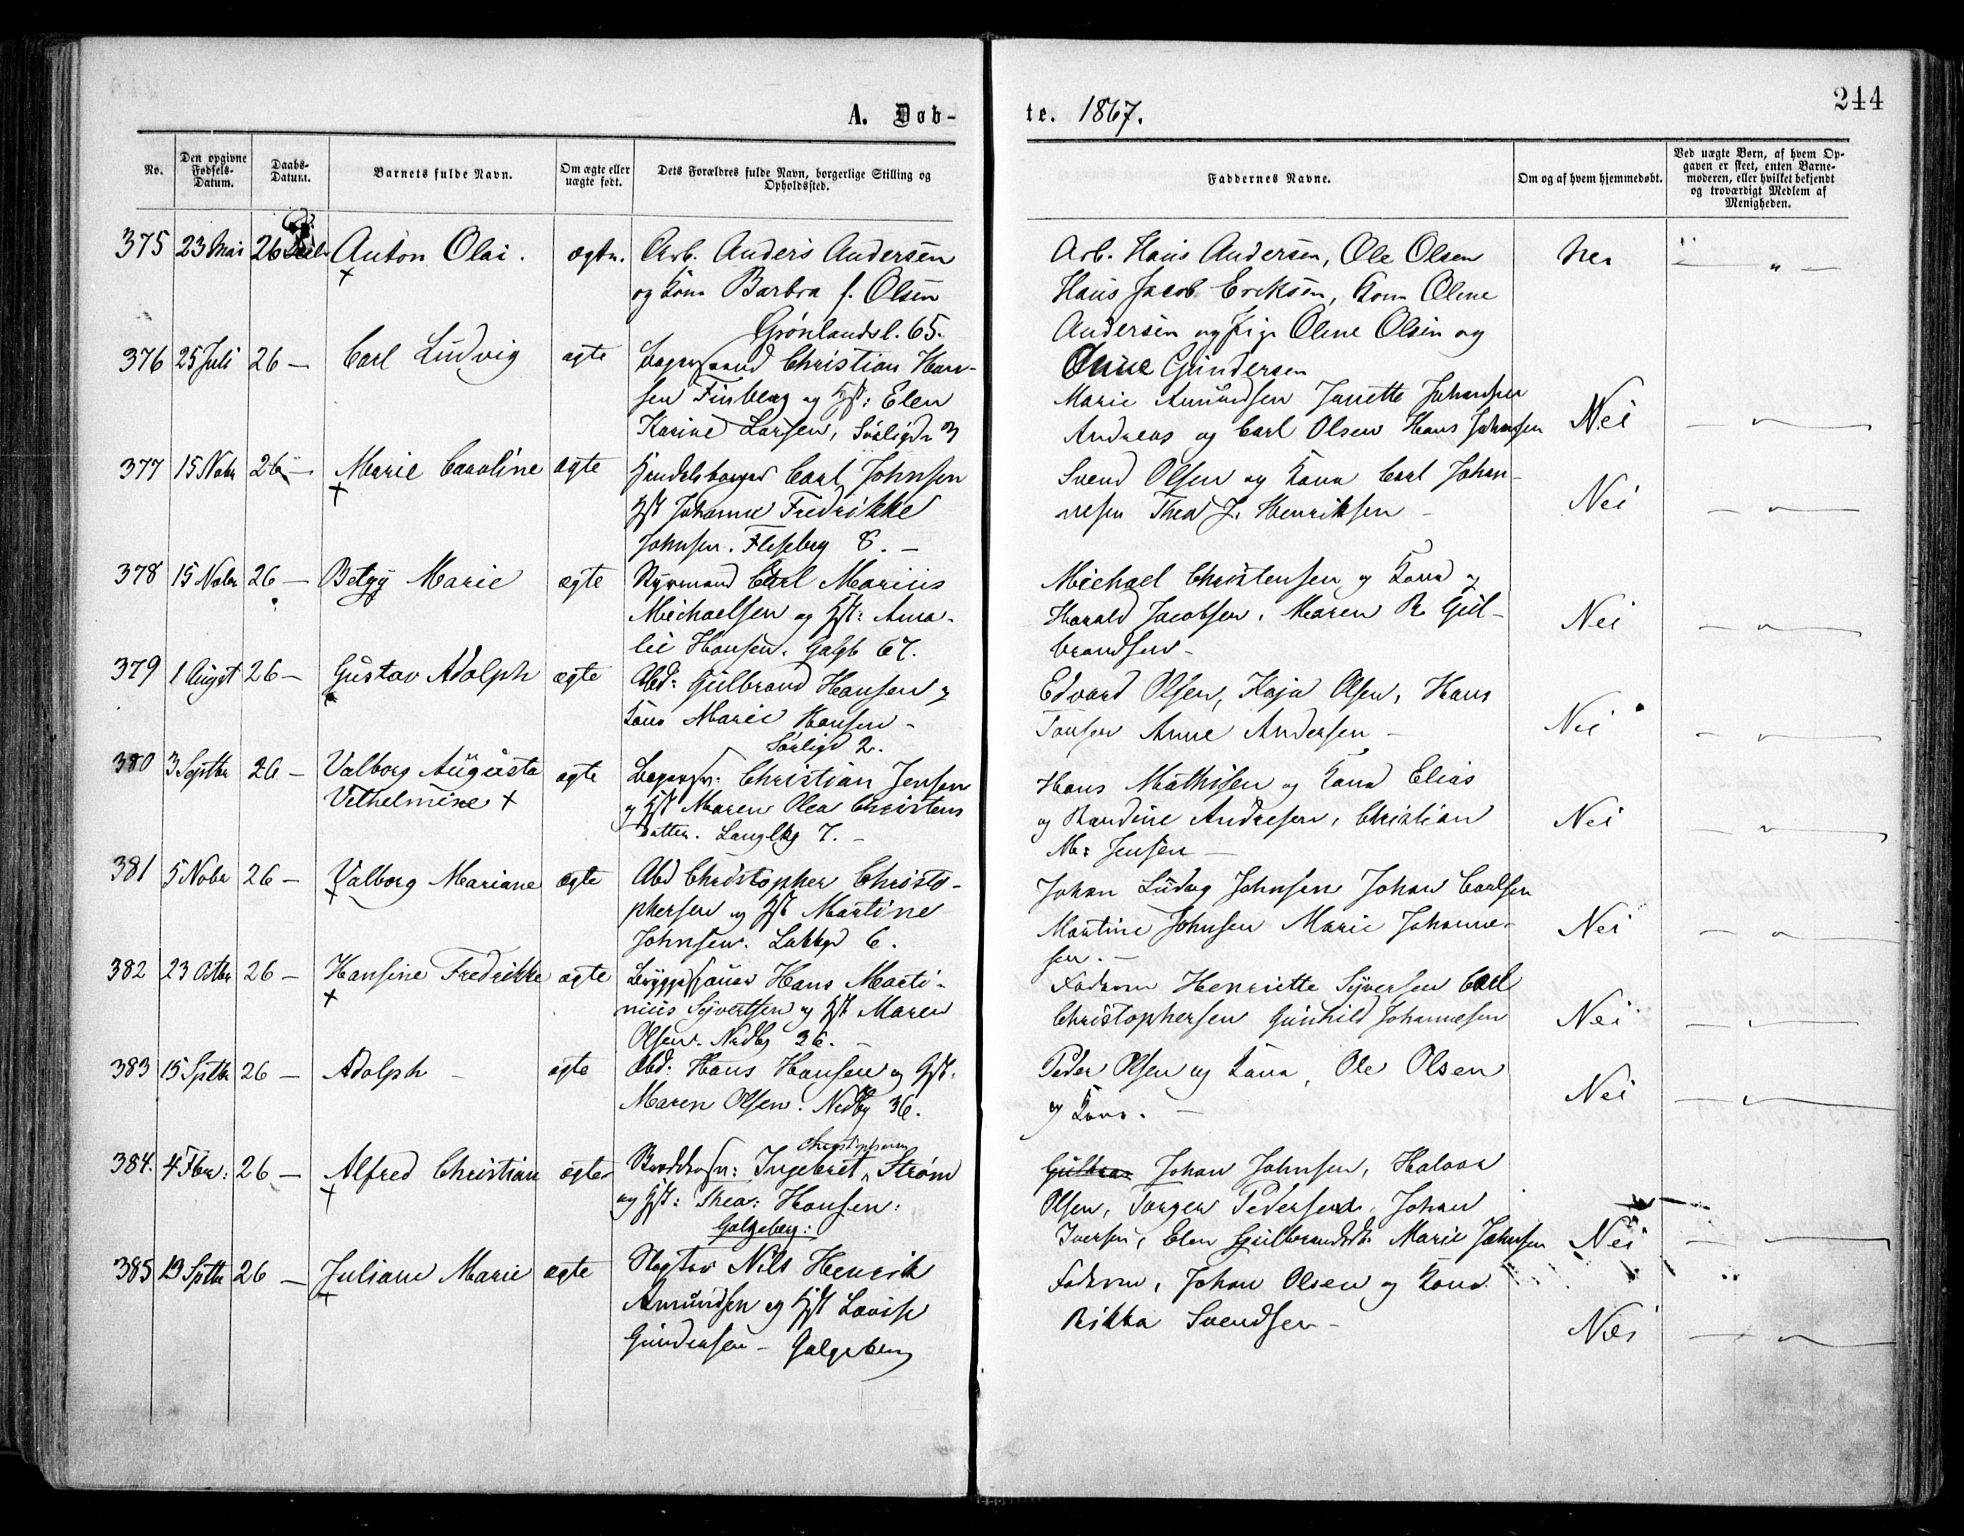 244
A. Døb-
te. 1867.
No.
Den opgivne Fødsels-Datum.
Daabs-Datum.
Barnets fulde Navn.
Om ægte eller uægte født.
Dets Forældres fulde Navn, borgerlige Stilling og Opholdssted.
Faddernes Navne.
Om og af hvem hjemmedøbt.
Ved uægte Børn, af hvem Op-
gaven er skeet, enten Barne-
moderen, eller hvilket bekjendt
og troværdigt Medlem af
Menigheden.
375 23 Mai 26 Anton Olai. ægte. Arb. Anders Andersen
og Kone Barbra f. Olsen
Grønlandsl. 65.
Arb. Hans Andersen, Ole Olsen
Hans Jacob Eriksen, Kone Oline
Andersen og Pige Oline Olsen og
Gundersen
Nei — " —
376 25 Juli 26 — Carl Ludvig ægte Christian Han-
sen Finberg og Hst: Elen
Karine Larsen,
Marie Amundsen Janette Johansen
Andreas og Carl Olsen Hans Johansen
Nei — " —
377 15 Nobr 26 — Marie Caroline ægte Carl Johnsen
Hst Johanne Fredrikke
Johnsen. 8. —
Svend Olsen og Kone Carl Johan-
nesen Thea J. Henriksen —
Nei — " —
378 15 Nobr 26 — Betzy Marie ægte Styrmand Carl Marius
Michaelsen og Hst: Ama-
lie Hansen. Galgb 67.
Michael Christensen og Kone og
Harald Jacobsen, Maren R Gul-
brandsen —
Nei — " —
379 1 Augst 26 — Gustav Adolph ægte Abd: Gulbrand Hansen og
Kone Marie Hansen —
2.
Edvard Olsen, Kaja Olsen, Hans
Anne Andersen —
Nei — " —
380 3 Septbr 26 — Valborg Augusta
Vilhelmine + ægte Christian Jensen
og Hst Maren Olea Christens
datter. Langlkg 7. —
Hans Mathisen og Kone Elias
og Randine Andresen, Christian
M: Jensen —
Nei — " —
381 5 Nobr 26 — Valborg Mariane ægte Abd Christopher Christo-
phersen og Hst Martine
Johnsen. Lakkgd 6.
Johan Ludvig Johnsen Johan Carlsen
Martine Johnsen Marie Johanne-
sen. —
Nei — " —
382 23 Octbr 26 — Hansine Fredrikke ægte Hans Marti-
nius Syvertsen og Hst Maren
Olsen. Nedbg 36. —
Faderen Henriette Syversen Carl
Christophersen Gunhild Johannesen
Nei — " —
383 15 Sptbr 26 — Adolph — ægte Abd: Hans Hansen og Hst:
Maren Olsen. Nedbg 36.
Peder Olsen og Kone, Ole Olsen
og Kone. —
Nei — " —
384. 4 Fbr: 26 — Alfred Christian ægte Ingebret Strøm
og Hst: Thea: Hansen:
Galgeberg:
Johan Johnsen, Halvor
Olsen, Torger Pedersen, Johan
Iversen, Elen Marie Johnsen
Nei — " —
385 13 Sptbr 26 — Juliane Marie ægte Nils Henrik
Amundsen og Hst Lovise
Gundersen — Galgeberg
Faderen, Johan Olsen og Kone
Rikka Svendsen —
Nei — " —